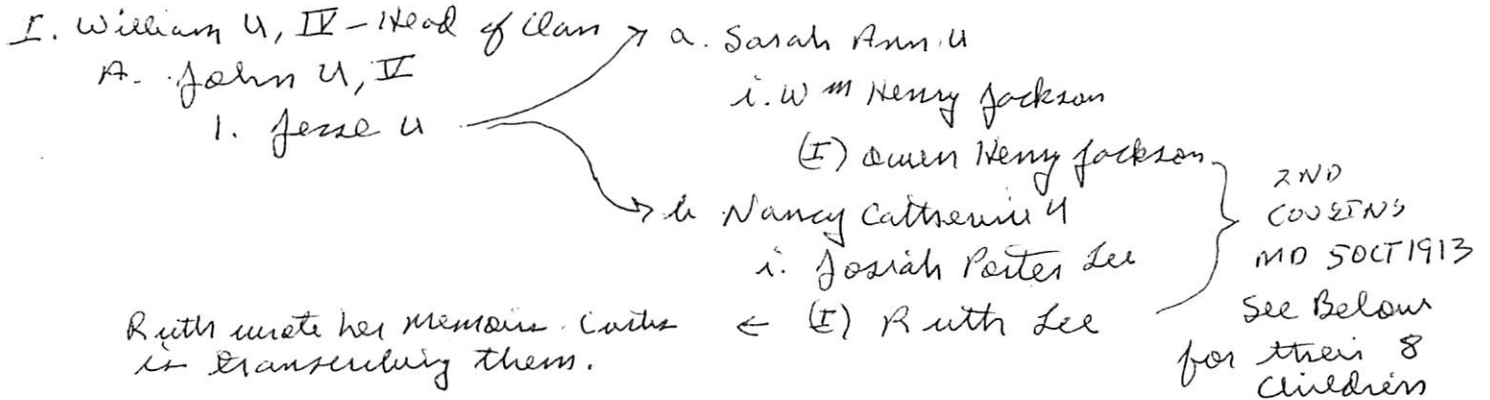 I. William U, IV - Head of Clan
A. John U, V
1. Jesse U
a. Sarah Ann U
i. Wm Henry Jackson
(I) Owen Henry Jackson
b Nancy Catherine U
i. Josiah Porter Lee
← (I) Ruth Lee
2ND
COUSINS
MD 5 OCT 1913
See Below
for their 8
children
Ruth wrote her memoirs. Curtis
is transcribing them.